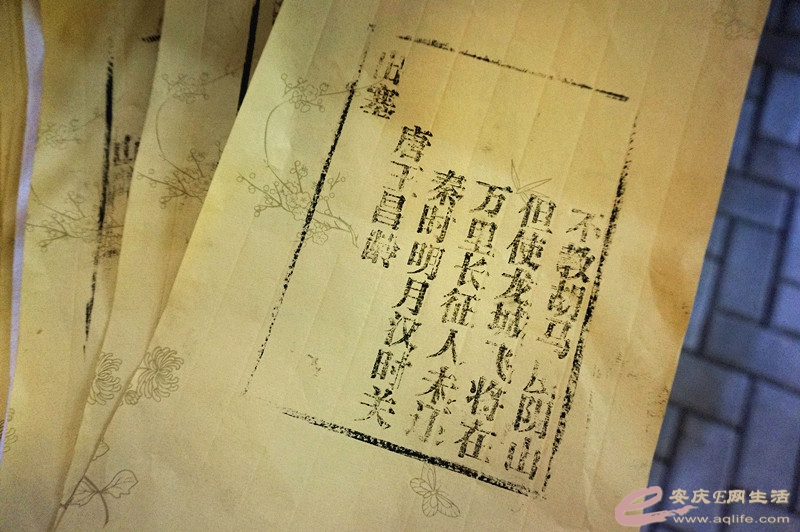 出塞
唐王昌龄
秦时明月汉时关
万里长征人未
但使龙城飞将在
不教胡马 阴山
安庆E网生活
www.aqlife.com